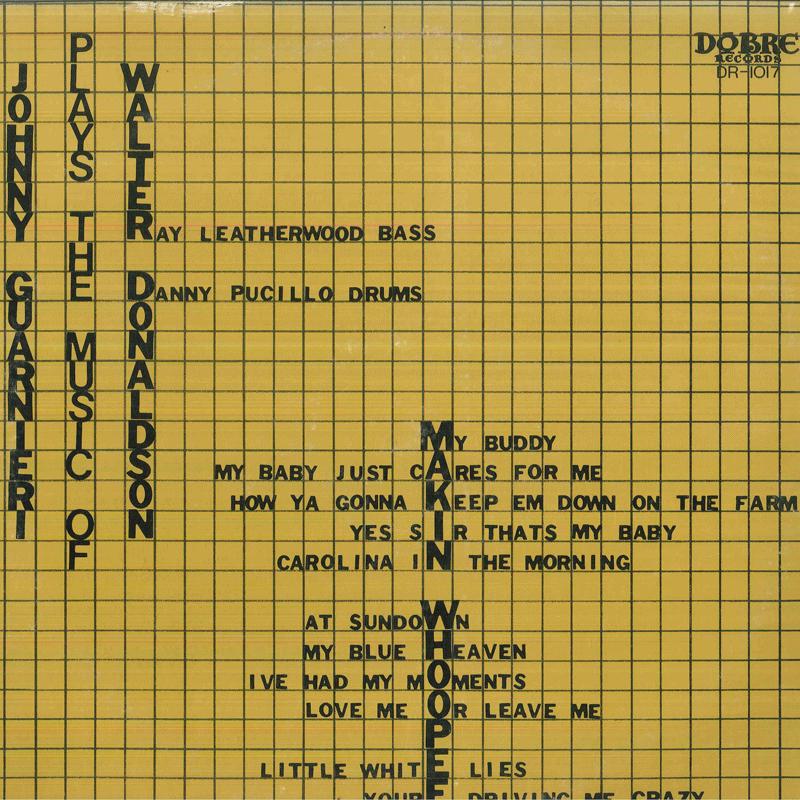 JOHNNY GUARNIERI
PLAYS THE MUSIC OF
WALTER DONALDSON
DOBRE
RECORDS
DR-1017
RAY LEATHERWOOD BASS
DANNY PUCILLO DRUMS
MAKIN WHOOPEE
MY BUDDY
MY BABY JUST CARES FOR ME
HOW YA GONNA KEEP EM DOWN ON THE FARM
YES SIR THATS MY BABY
CAROLINA IN THE MORNING
AT SUNDOWN
MY BLUE HEAVEN
IVE HAD MY MOMENTS
LOVE ME OR LEAVE ME
LITTLE WHITE LIES
YOURE DRIVING ME CRAZY